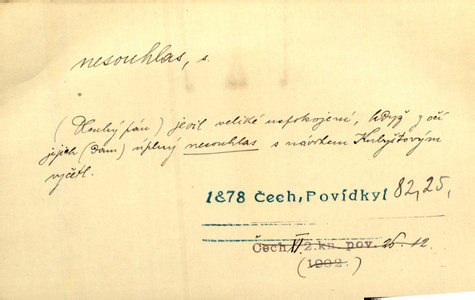 nesouhlas, s.
(Dlouhý pán) jevil veliké uspokojení, když z očí
jejich (dam) úplný nesouhlas s návrhem Kubištovým
vyčetl.
1878 Čech, Povídky I 82, 25,
Čech VI. 2.kn. pov. 26.12
(1902.)